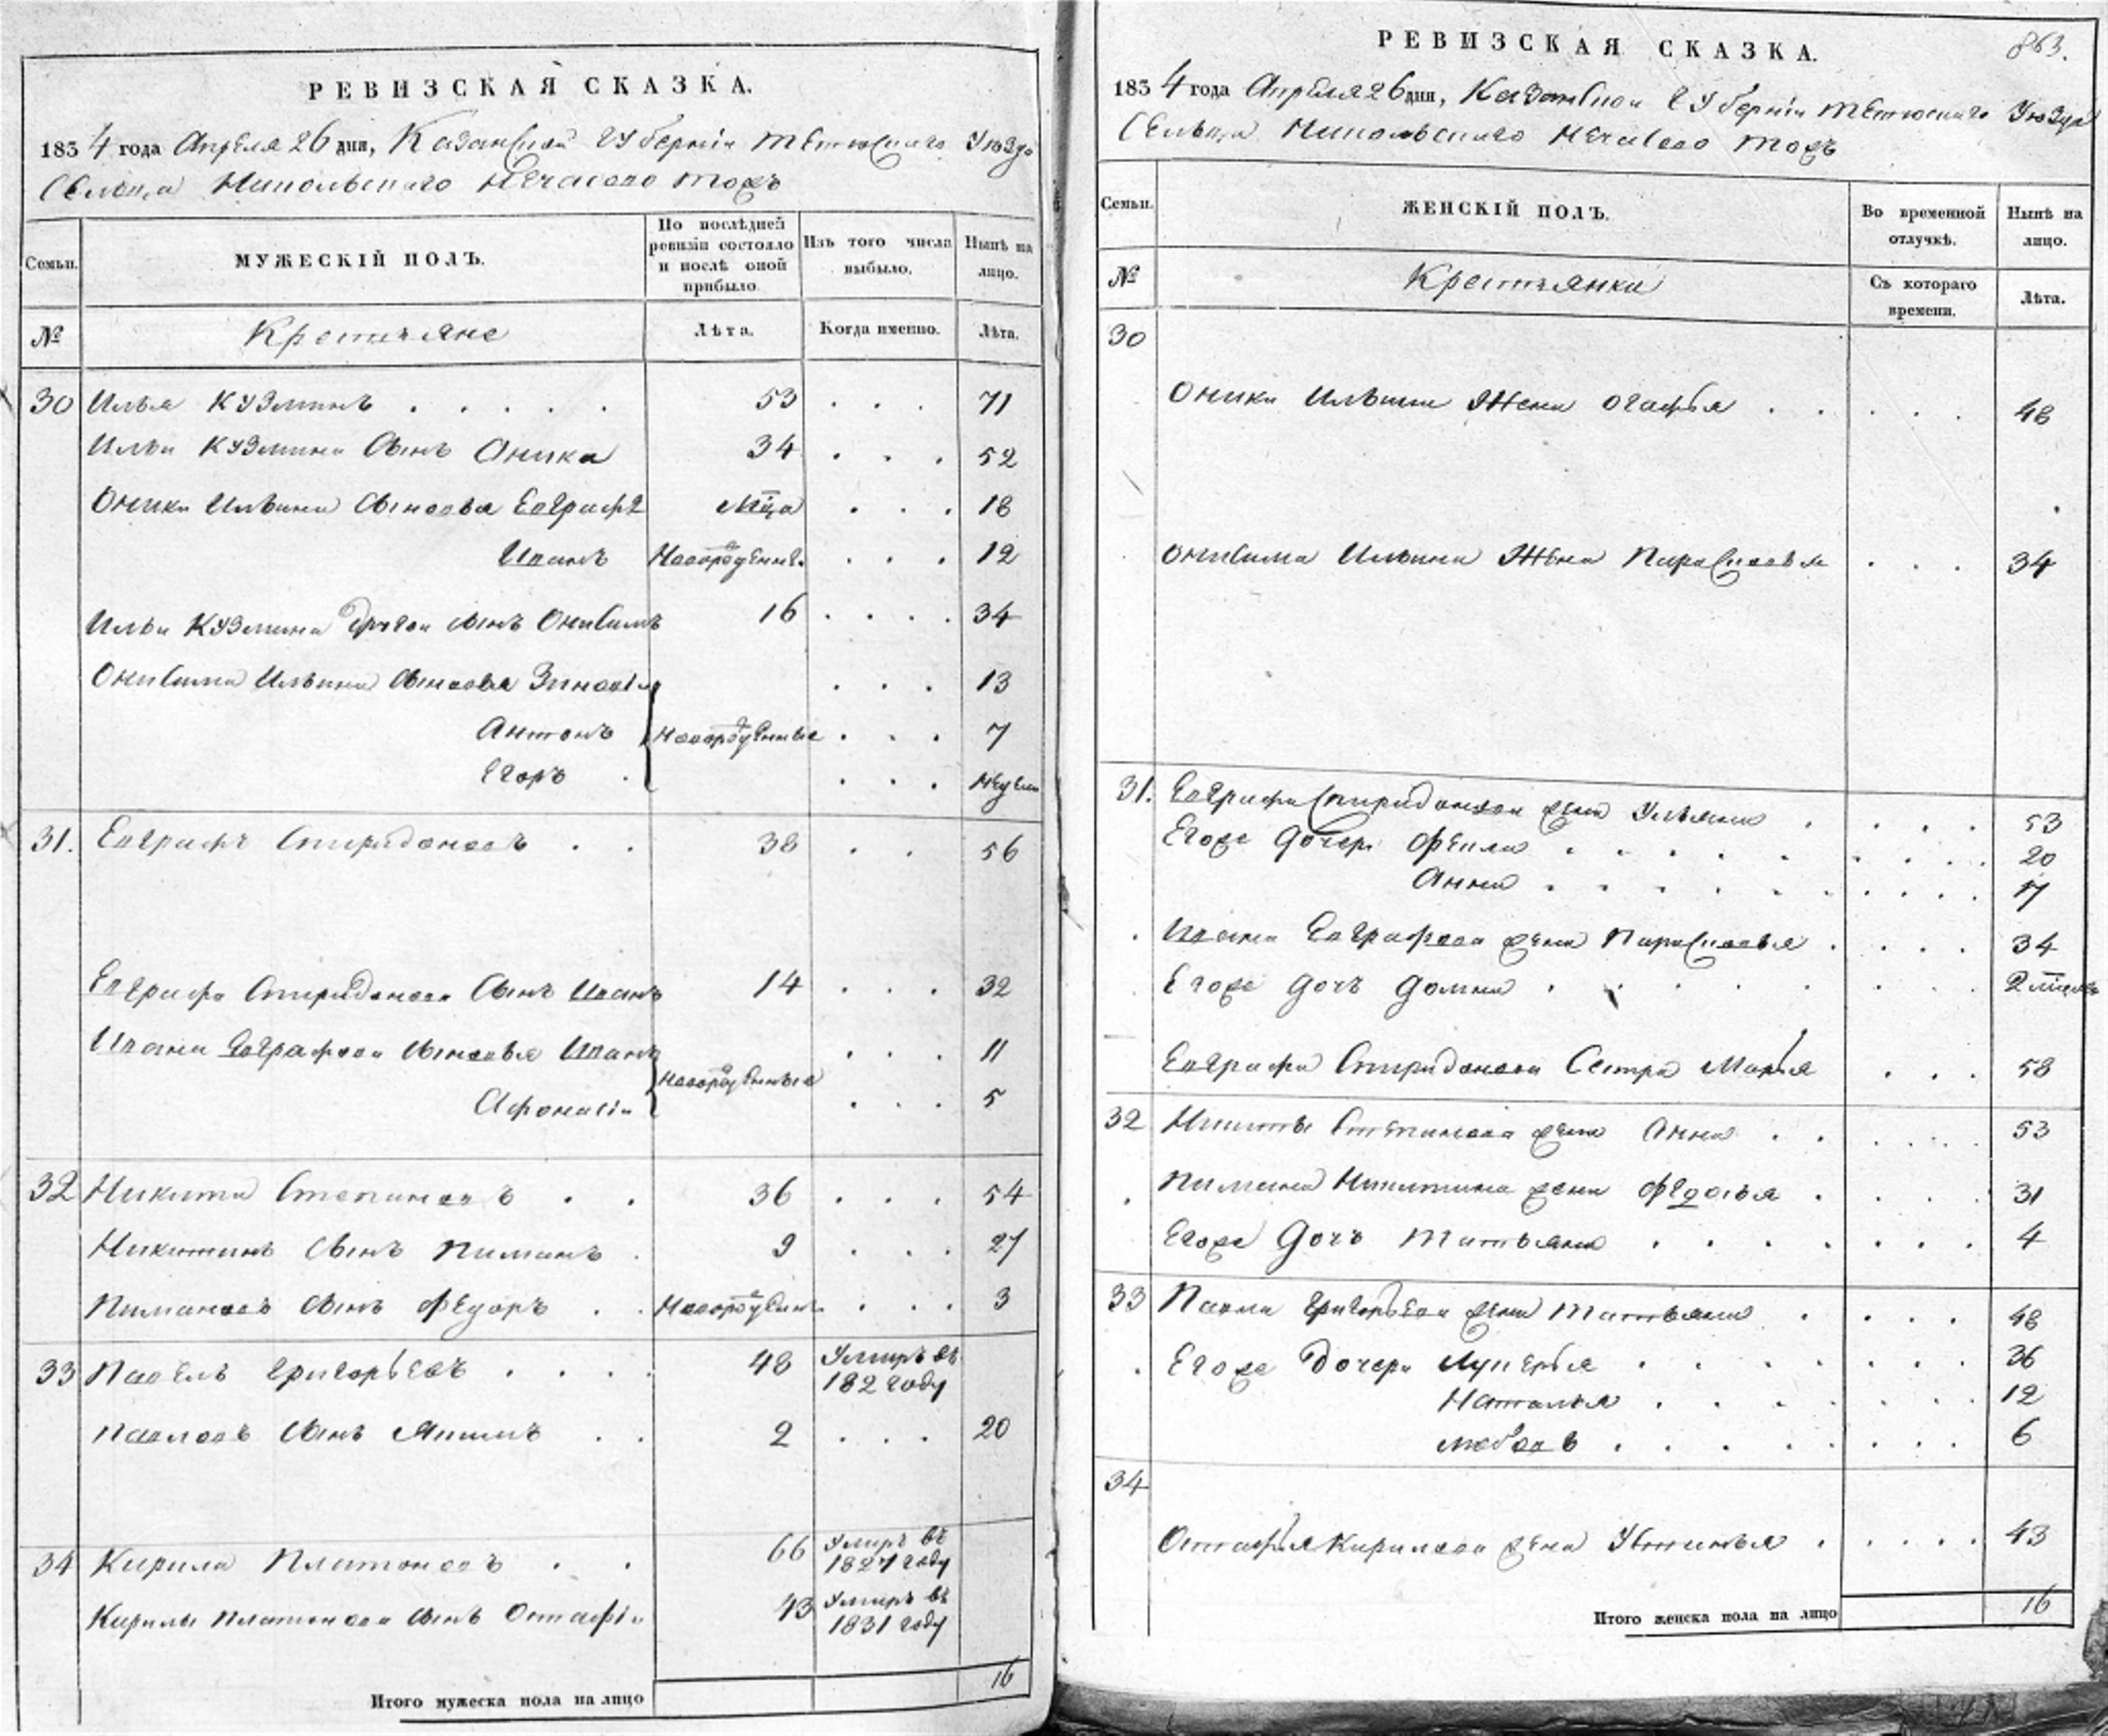 РЕВИЗСКАЯ СКАЗКА.
1834 года Апреля 26 дня, Казанской Губерніи Тетюскаго Уезда
Сельца Никольскаго Нечасово тожъ
Семьи.
МУЖЕСКІЙ ПОЛЪ.
По послѣдней ревизіи состояло и послѣ оной прибыло
Изъ того числа выбыло.
Нынѣ на лицо.
№
Крестьяне
Лѣта.
Когда именно.
Лѣта.
30 Илья Кузминъ . . . . . 53 . . . 71
Ильи Кузмина Сынъ Оника 34 . . . 52
Оники Ильина Сыновья Евграфъ Мца . . . 18
Иванъ Новорожденнъ . . . 12
Ильи Кузмина другой сынъ Онисимъ 16 . . . . 34
Онисима Ильина Сыновья Зиновій . . . 13
Антонъ Новорожденные . . . 7
Егоръ . . . . Недель
31. Евграфъ Спиридоновъ . . 38 . . 56
Евграфа Спиридонова Сынъ Иванъ 14 . . . 32
Ивана Евграфова Сыновья Иванъ . . . 11
Новорожденные
Афонасій . . . 5
32 Никита Степановъ . . 36 . . . 54
Никитинъ Сынъ Пиманъ . 9 . . . 27
Пимановъ Сынъ Федоръ . . Новорожден . . . 3
33 Павелъ Григорьевъ . . . . 48 Умиръ въ 182 году
Павловъ Сынъ Якимъ . . 2 . . . 20
34 Кирила Платоновъ . . 66 Умиръ въ 1827 году
Кирилы Платонова Сынъ Остафій 43 Умиръ въ 1831 году
Итого мужеска пола на лицо 16
863.
РЕВИЗСКАЯ СКАЗКА.
1834 года Апреля 26 дня, Казанской Губерніи Тетюскаго Уезда
Сельца Никольскаго Нечасово тожъ
Семьи.
ЖЕНСКІЙ ПОЛЪ.
Во временной отлучкѣ.
Нынѣ на лицо.
№
Крестьянки
Съ котораго времени.
Лѣта.
30
Оники Ильина Жена Огафья . . . . . 48
Онисима Ильина Жена Парасковья . . . 34
31. Евграфа Спиридонова жена Ульяна . . . . 53
Егоже дочери Фекла . . . . . . . . . 20
Анна . . . . . . . . . 17
Ивана Евграфова жена Парасковья . . . . 34
Егоже дочь Домна . . . . . . . 2 мцовъ
Евграфа Спиридонова Сестра Марья . . . 58
32 Никиты Степанова жена Анна . . . . . . 53
Пимана Никитина жена Федосья . . . . 31
Егоже дочь Татьяна . . . . . . . 4
33 Павла Григорьева жена Татьяна . . . . 48
Егоже дочери Лукерья . . . . . . . 36
Наталья . . . . . . 12
Любовь . . . . . . . 6
34
Остафья Кирилова жена Устинья . . . . 43
Итого женска пола на лицо 16